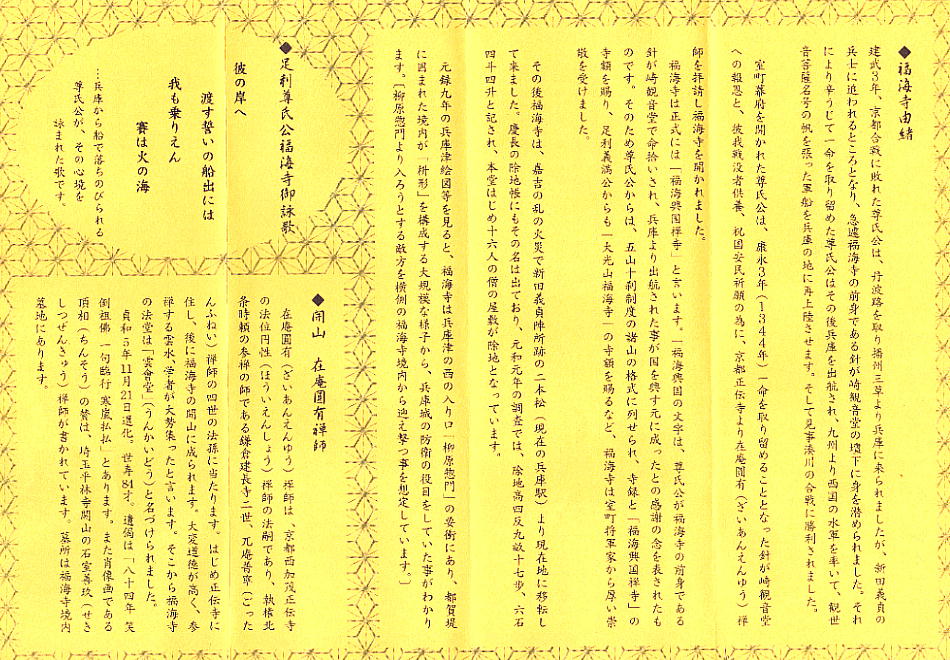 ◆福海寺由緒
建武３年、京都合戦に敗れた尊氏公は、丹波路を取り播州三草より兵庫に来られましたが、新田義貞の
兵士に追われるところとなり、急遽福海寺の前身である針が崎観音堂の壇下に身を潜められました。それ
により辛うじて一命を取り留めた尊氏公はその後兵庫を出航され、九州より西国の水軍を率いて、観世
音菩薩名号の帆を張った軍船を兵庫の地に再上陸させます。そして見事湊川の合戦に勝利されました。
室町幕府を開かれた尊氏公は、康永３年（１３４４年）一命を取り留めることとなった針が崎観音堂
への報恩と、彼我戦没者供養、祝国安民祈願の為に、京都正伝寺より在庵圓有（ざいあんえんゆう）禅
師を拝請し福海寺を開かれました。
福海寺は正式には「福海興国禅寺」と言います。「福海興国の文字は、尊氏公が福海寺の前身である
針が崎観音堂で命拾いされ、兵庫より出航された事が国を興す元に成ったとの感謝の念を表されたも
のです。そのため尊氏公からは、五山十刹制度の諸山の格式に列せられ、寺録と「福海興国禅寺」の
寺額を賜り、足利義満公からも「大光山福海寺」の寺額を賜るなど、福海寺は室町将軍家から厚い崇
敬を受けました。
その後福海寺は、嘉吉の乱の火災で新田義貞陣所跡の二本松（現在の兵庫駅）より現在地に移転し
て来ました。慶長の除地帳にもその名は出ており、元和元年の調査では、除地高四反九畝十七歩、六石
四斗四升と記され、本堂はじめ十六人の僧の屋敷が除地となっています。
元録九年の兵庫津絵図等を見ると、福海寺は兵庫津の西の入り口「柳原惣門」の要衝にあり、都賀堤
に囲まれた境内が「桝形」を構成する大規模な様子から、兵庫城の防衛の役目をしていた事がわかり
ます。［柳原惣門より入ろうとする敵方を横側の福海寺境内から迎え撃つ事を想定しています。］
◆足利尊氏公福海寺御詠歌
彼の岸へ
渡す誓いの船出には
我も乗りえん
賽は火の海
…兵庫から船で落ちのびられる
尊氏公が、その心境を
詠まれた歌です。
◆開山　在庵圓有禅師
在庵圓有（ざいあんえんゆう）禅師は、京都西加茂正伝寺
の法位円性（ほういえんしょう）禅師の法嗣であり、執権北
条時頼の参禅の師である鎌倉建長寺二世、兀庵普寧（ごった
んふねい）禅師の四世の法孫に当たります。はじめ正伝寺に
住し、後に福海寺の開山に成られます。大変道徳が高く、参
禅する雲水、学者が大勢集ったと言います。そこから福海寺
の法堂は「雲會堂」（うんかいどう）と名づけられました。
貞和５年11月21日遷化。世寿84才。遺偈は「八十四年　笑
倒祖佛　一句臨行　寒嵐払払」とあります。また肖像画である
頂相（ちんそう）の賛は、埼玉平林寺開山の石室善玖（せき
しつぜんきゅう）禅師が書かれています。墓所は福海寺境内
墓地にあります。